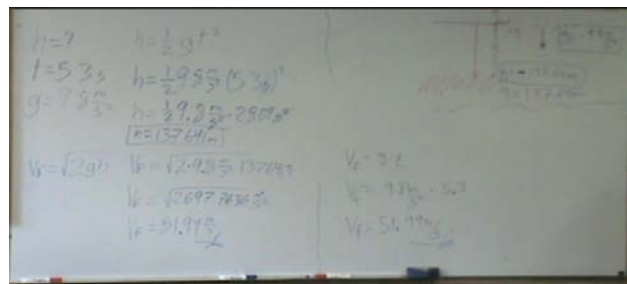 h=?
t=5.3s
g=9.8 m/s²
h=½gt²
h=½9.8 m/s²(5.3s)²
h=½9.8 m/s²·28.09s²
h=137.641m
Vf=√2gh
Vf=√2·9.8 m/s²·137.641m
Vf=√2697.7636 m²/s²
Vf=51.94 m/s
Vf=
Vf=9.8 m/s²·5.3
Vf=51.94 m/s